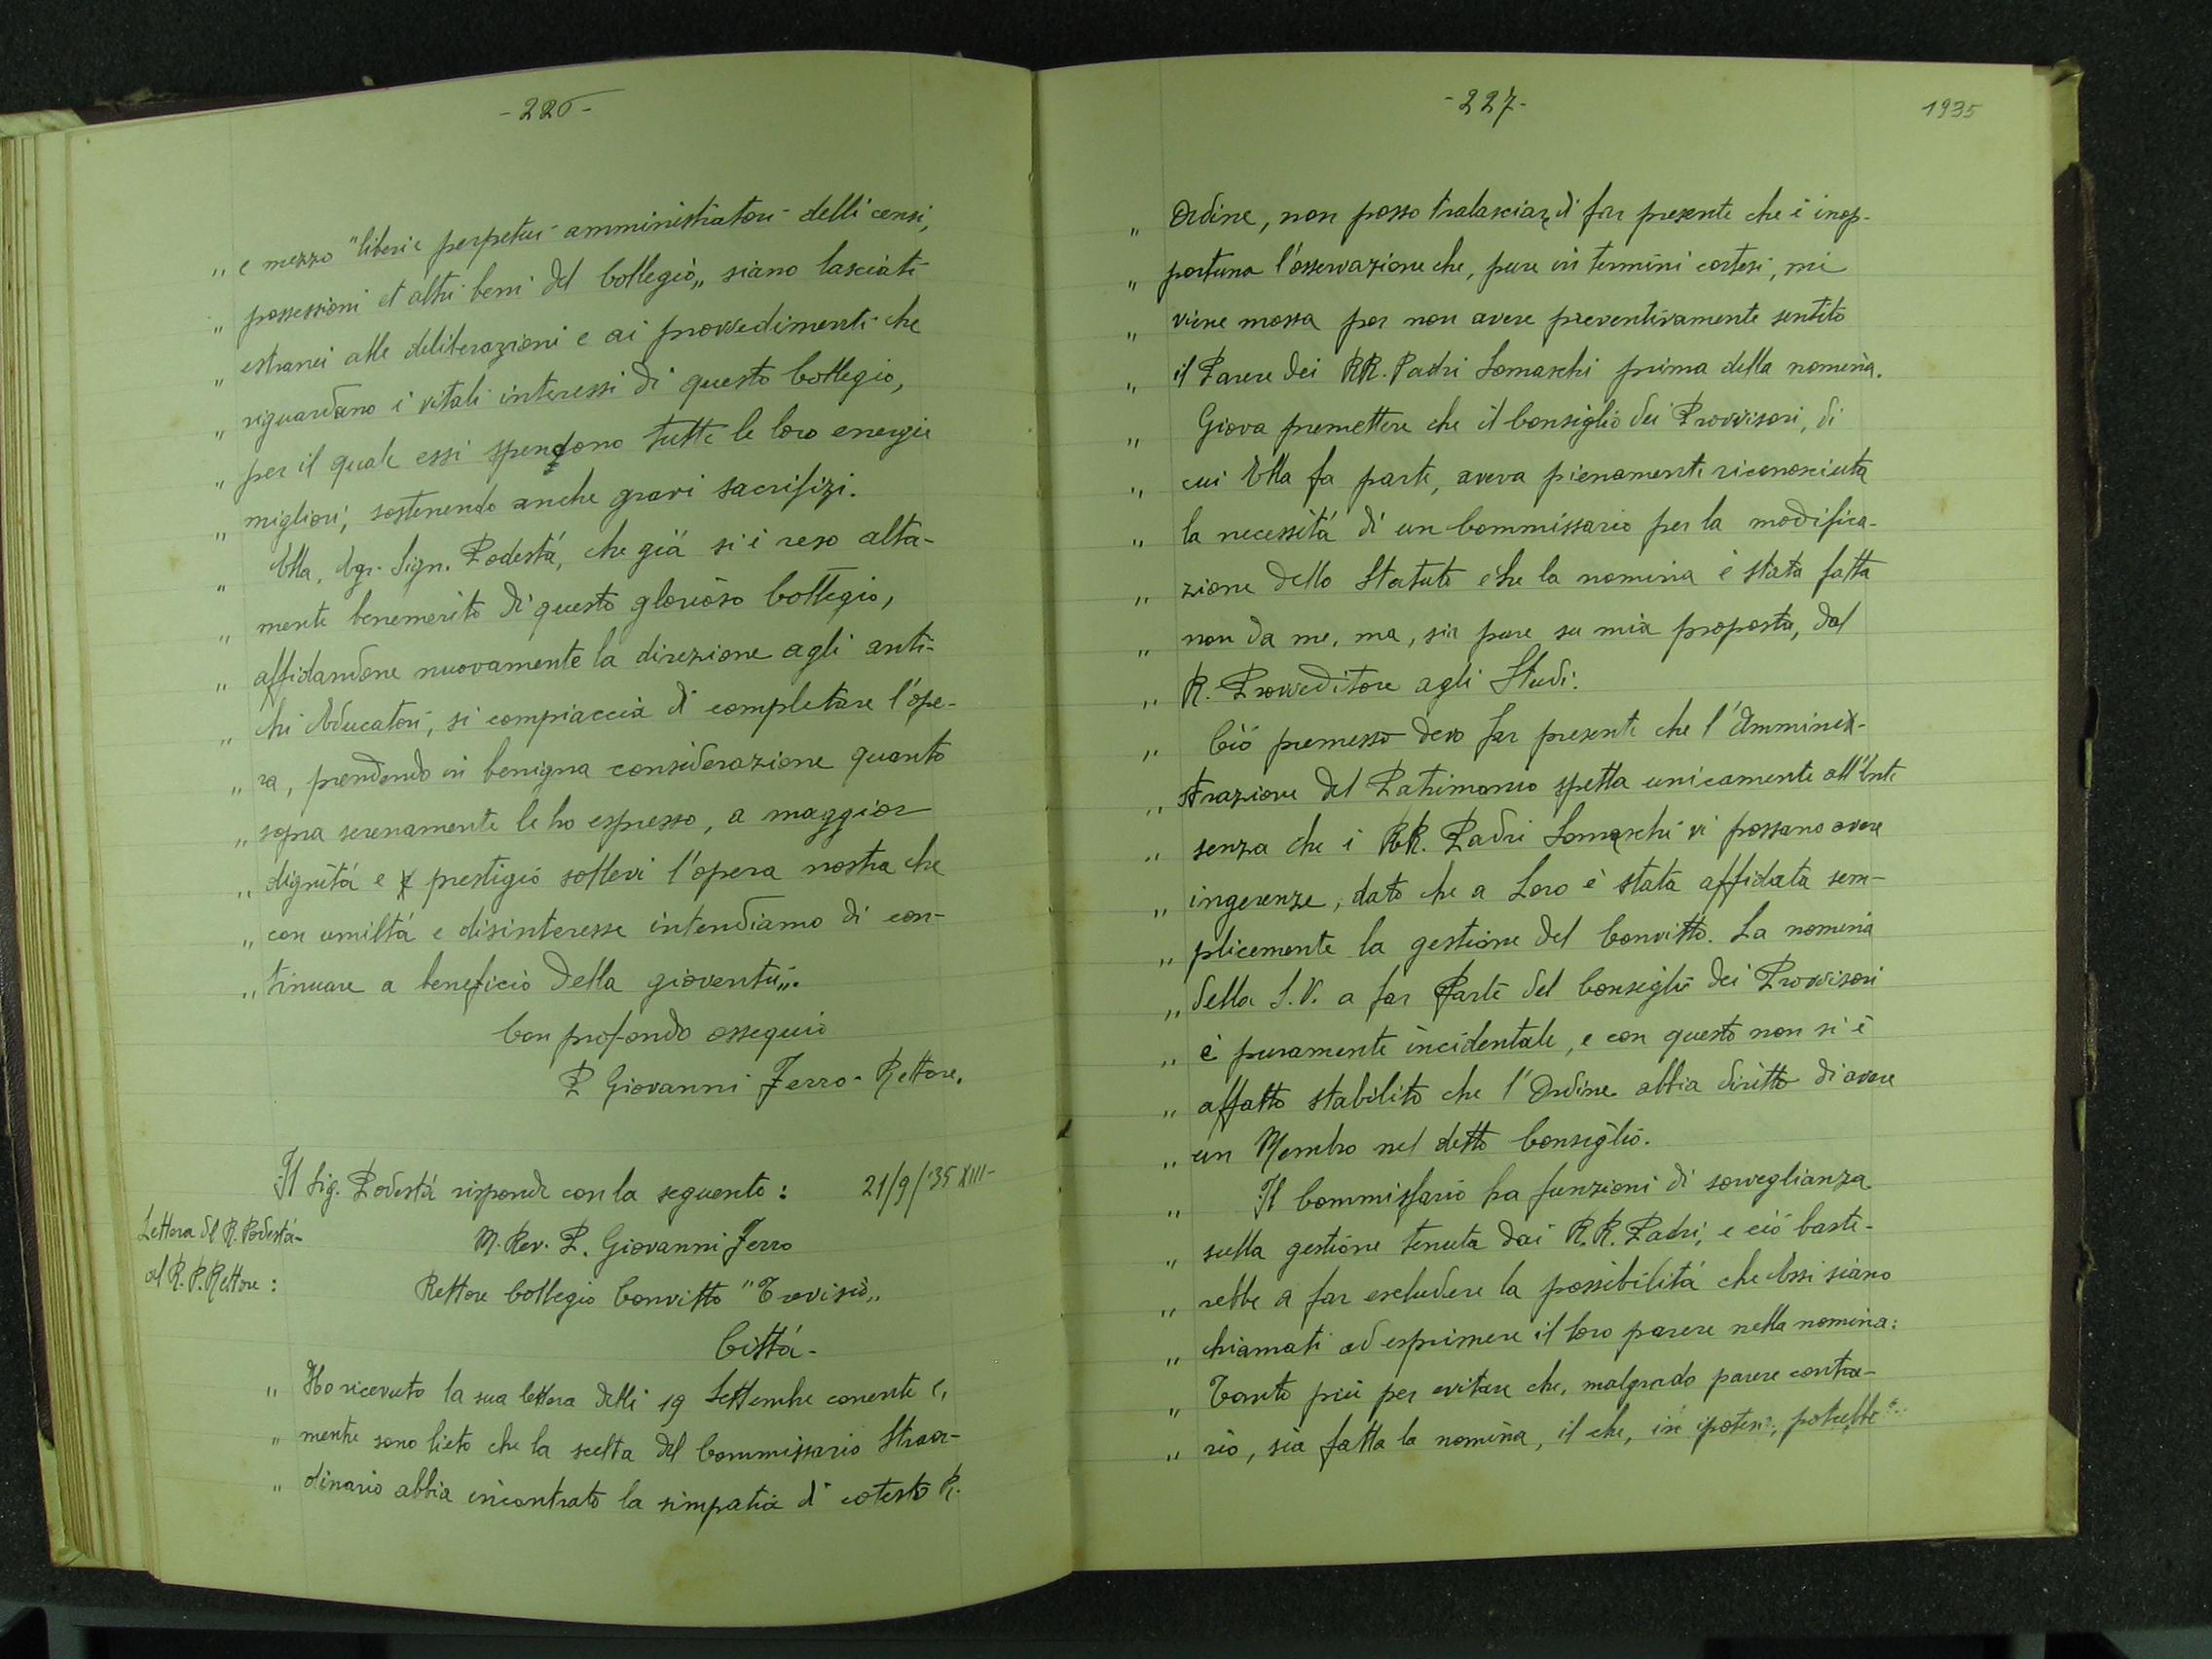 -226-
„ e mezzo "liberi e perpetui amministratori delli censi,
„ possessioni et altri beni del Collegio„ siano lasciati
„ estranei alle deliberazioni e ai provvedimenti che
„ riguardano i vitali interessi di questo Collegio,
„ per il quale essi spendono tutte le loro energie
„ migliori, sostenendo anche gravi sacrifizi.
„ Ella, Egr. Sign. Podestá, che giá si è reso alta-
„ mente benemerito di questo glorioso Collegio,
„ affidandone nuovamente la direzione agli anti-
„ chi Educatori, si compiaccia di completare l'ope-
„ ra, prendendo in benigna considerazione quanto
„ sopra serenamente le ho espresso, a maggior
„ dignitá e prestigio sollevi l'opera nostra che
„ con umiltá e disinteresse intendiamo di con-
„ tinuare a beneficio della gioventú„.
Con profondo ossequio
P Giovanni Ferro - Rettore.
Il Sig. Podestá risponde con la seguente: 21/9/'35 XIII-
Lettera del R. Podestá-
al R. P. Rettore:
M. Rev. P. Giovanni Ferro
Rettore Collegio Convitto "Trevisio„
Cittá-
„ Ho ricevuto la sua lettera delli 19 Settembre corrente e,
„ mentre sono lieto che la scelta del Commissario Straor-
„ dinario abbia incontrato la simpatia di cotesto R.
-227-
1935
„ Ordine, non posso tralasciare di far presente che è inop-
„ portuna l'osservazione che, pure in termini cortesi, mi
„ viene mossa per non avere preventivamente sentito
„ il Parere dei RR. Padri Somaschi prima della nomina.
„ Giova premettere che il Consiglio dei Provvisori, di
„ cui Ella fa parte, aveva pienamente riconosciuta
„ la necessitá di un Commissario per la modifica-
„ zione dello Statuto e che la nomina è stata fatta
„ non da me, ma, sia pure su mia proposta, dal
„ R. Provveditore agli Studi.
„ Ció premesso devo far presente che l'Ammini-
„ strazione del Patrimonio spetta unicamente all'Ente
„ senza che i RR. Padri Somaschi vi possano avere
„ ingerenze, dato che a Loro è stata affidata sem-
„ plicemente la gestione del Convitto. La nomina
„ della S.V. a far Parte del Consiglio dei Provvisori
„ è puramente incidentale, e con questo non si è
„ affatto stabilito che l'Ordine abbia diritto di avere
„ un Membro nel detto Consiglio.
„ Il Commissario ha funzioni di sorveglianza
„ sulla gestione tenuta dai R.R. Padri, e ció baste-
„ rebbe a far escludere la possibilitá che Essi siano
„ chiamati ad esprimere il loro parere nella nomina:
„ Tanto piú per evitare che, malgrado parere contra-
„ rio, sia fatta la nomina, il che, in ipotesi, potrebbe